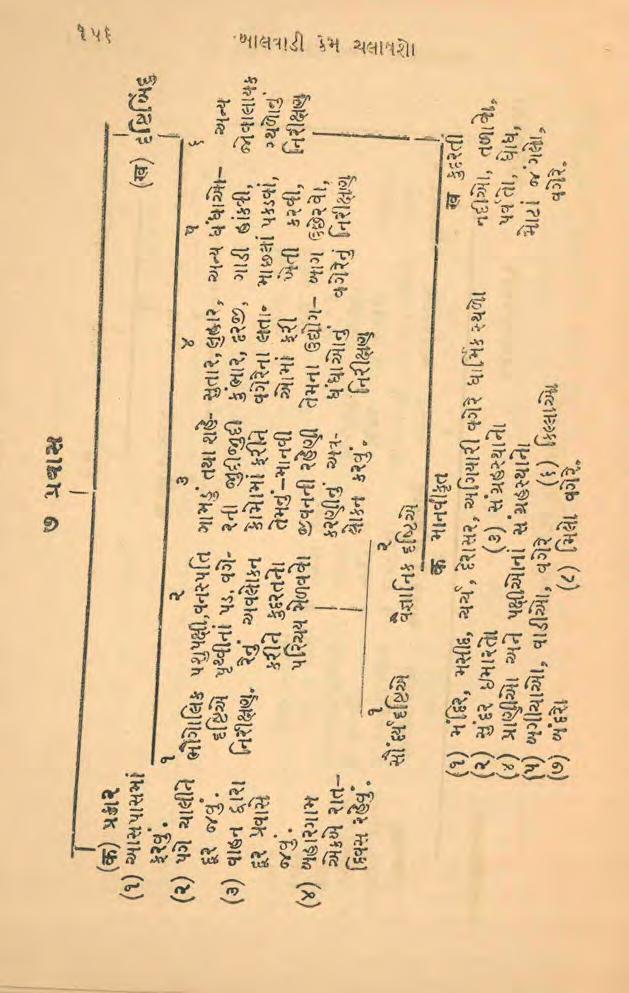 ૧૫૬
બાલવાડી કેમ ચલાવશો
૭ પ્રવાસ
(ક) પ્રકાર
(૧) આસપાસમાં
ફરવું.
(૨) પગે ચાલીને
દૂર જવું.
(૩) વાહન દ્વારા
દૂર પ્રવાસે
જવું.
(૪) બહારગામ
એકાદ રાત–
દિવસ રહેવું.
(ખ) દૃષ્ટિબિંદુ
૧
ભૌગોલિક
દૃષ્ટિએ
નિરીક્ષણ.
૨
પશુપક્ષી, વનસ્પતિ
પૃથ્વીનાં પડ, વગે-
રેનું અવલોકન
કરીને કુદરતનો
પરિચય મેળવવો
૩
ગામડું તથા શહે-
રની જુદીજુદી
કોમોમાં ફરીને
તેમનું–માનવી
જીવનની રહેણી
કરણીનું અવ-
લોકન કરવું.
૪
સુતાર, લુહાર,
કુંભાર, દરજી,
વગેરેના લતા-
ઓમાં ફરી
તેમના ઉદ્યોગ–
ધંધાઓનું
નિરીક્ષણ
૫
અન્ય ધંધાઓ–
ગાડી હાંકવી,
માછલાં પકડવાં,
ખેતી કરવી,
બાગ ઉછેરવા,
વગેરેનું નિરીક્ષણ
૬
અન્ય
જોવાલાયક
સ્થળોનું
નિરીક્ષણ
૧
સૌંદર્યદૃષ્ટિએ
૨
વૈજ્ઞાનિક દૃષ્ટિએ
ક માનવીકૃત
(૧) મંદિર, મસીદ, ચર્ચ, દેરાસર, અગિયારી વગેરે ધાર્મિક સ્થળો
(૨) સુંદર ઇમારતો (૩) સંગ્રહસ્થાનો
(૪) પ્રાણીઓ અને પક્ષીઓનાં સંગ્રહસ્થાનો
(૫) બગીચાઓ, વાડીઓ, વગેરે (૬) કિલ્લાઓ
(૭) બંદરો (૮) મિલો વગેરે.
ખ કુદરતી
નદીઓ, તળાવો,
પર્વતો, ધોધ,
મોટાં જંગલો,
વગેરે.